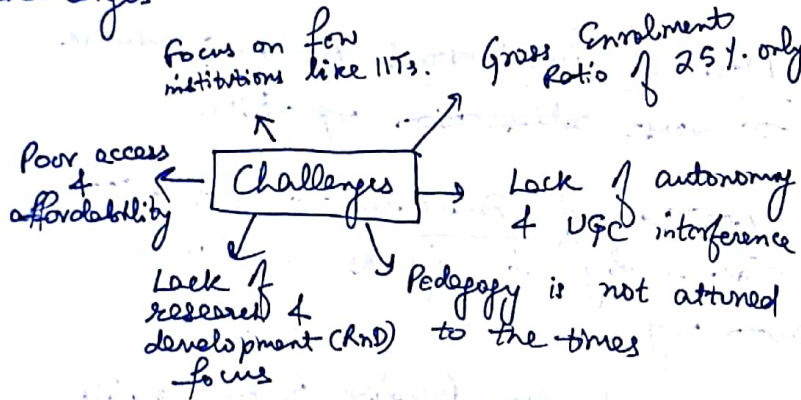 Focus on few
institutions like IITs.
Gross Enrolment
Ratio of 25%. only
Poor access
&
affordability
Challenges
Lack of autonomy
& UGC interference
Lack of
research &
development (RnD)
focus
Pedagogy is not attuned
to the times